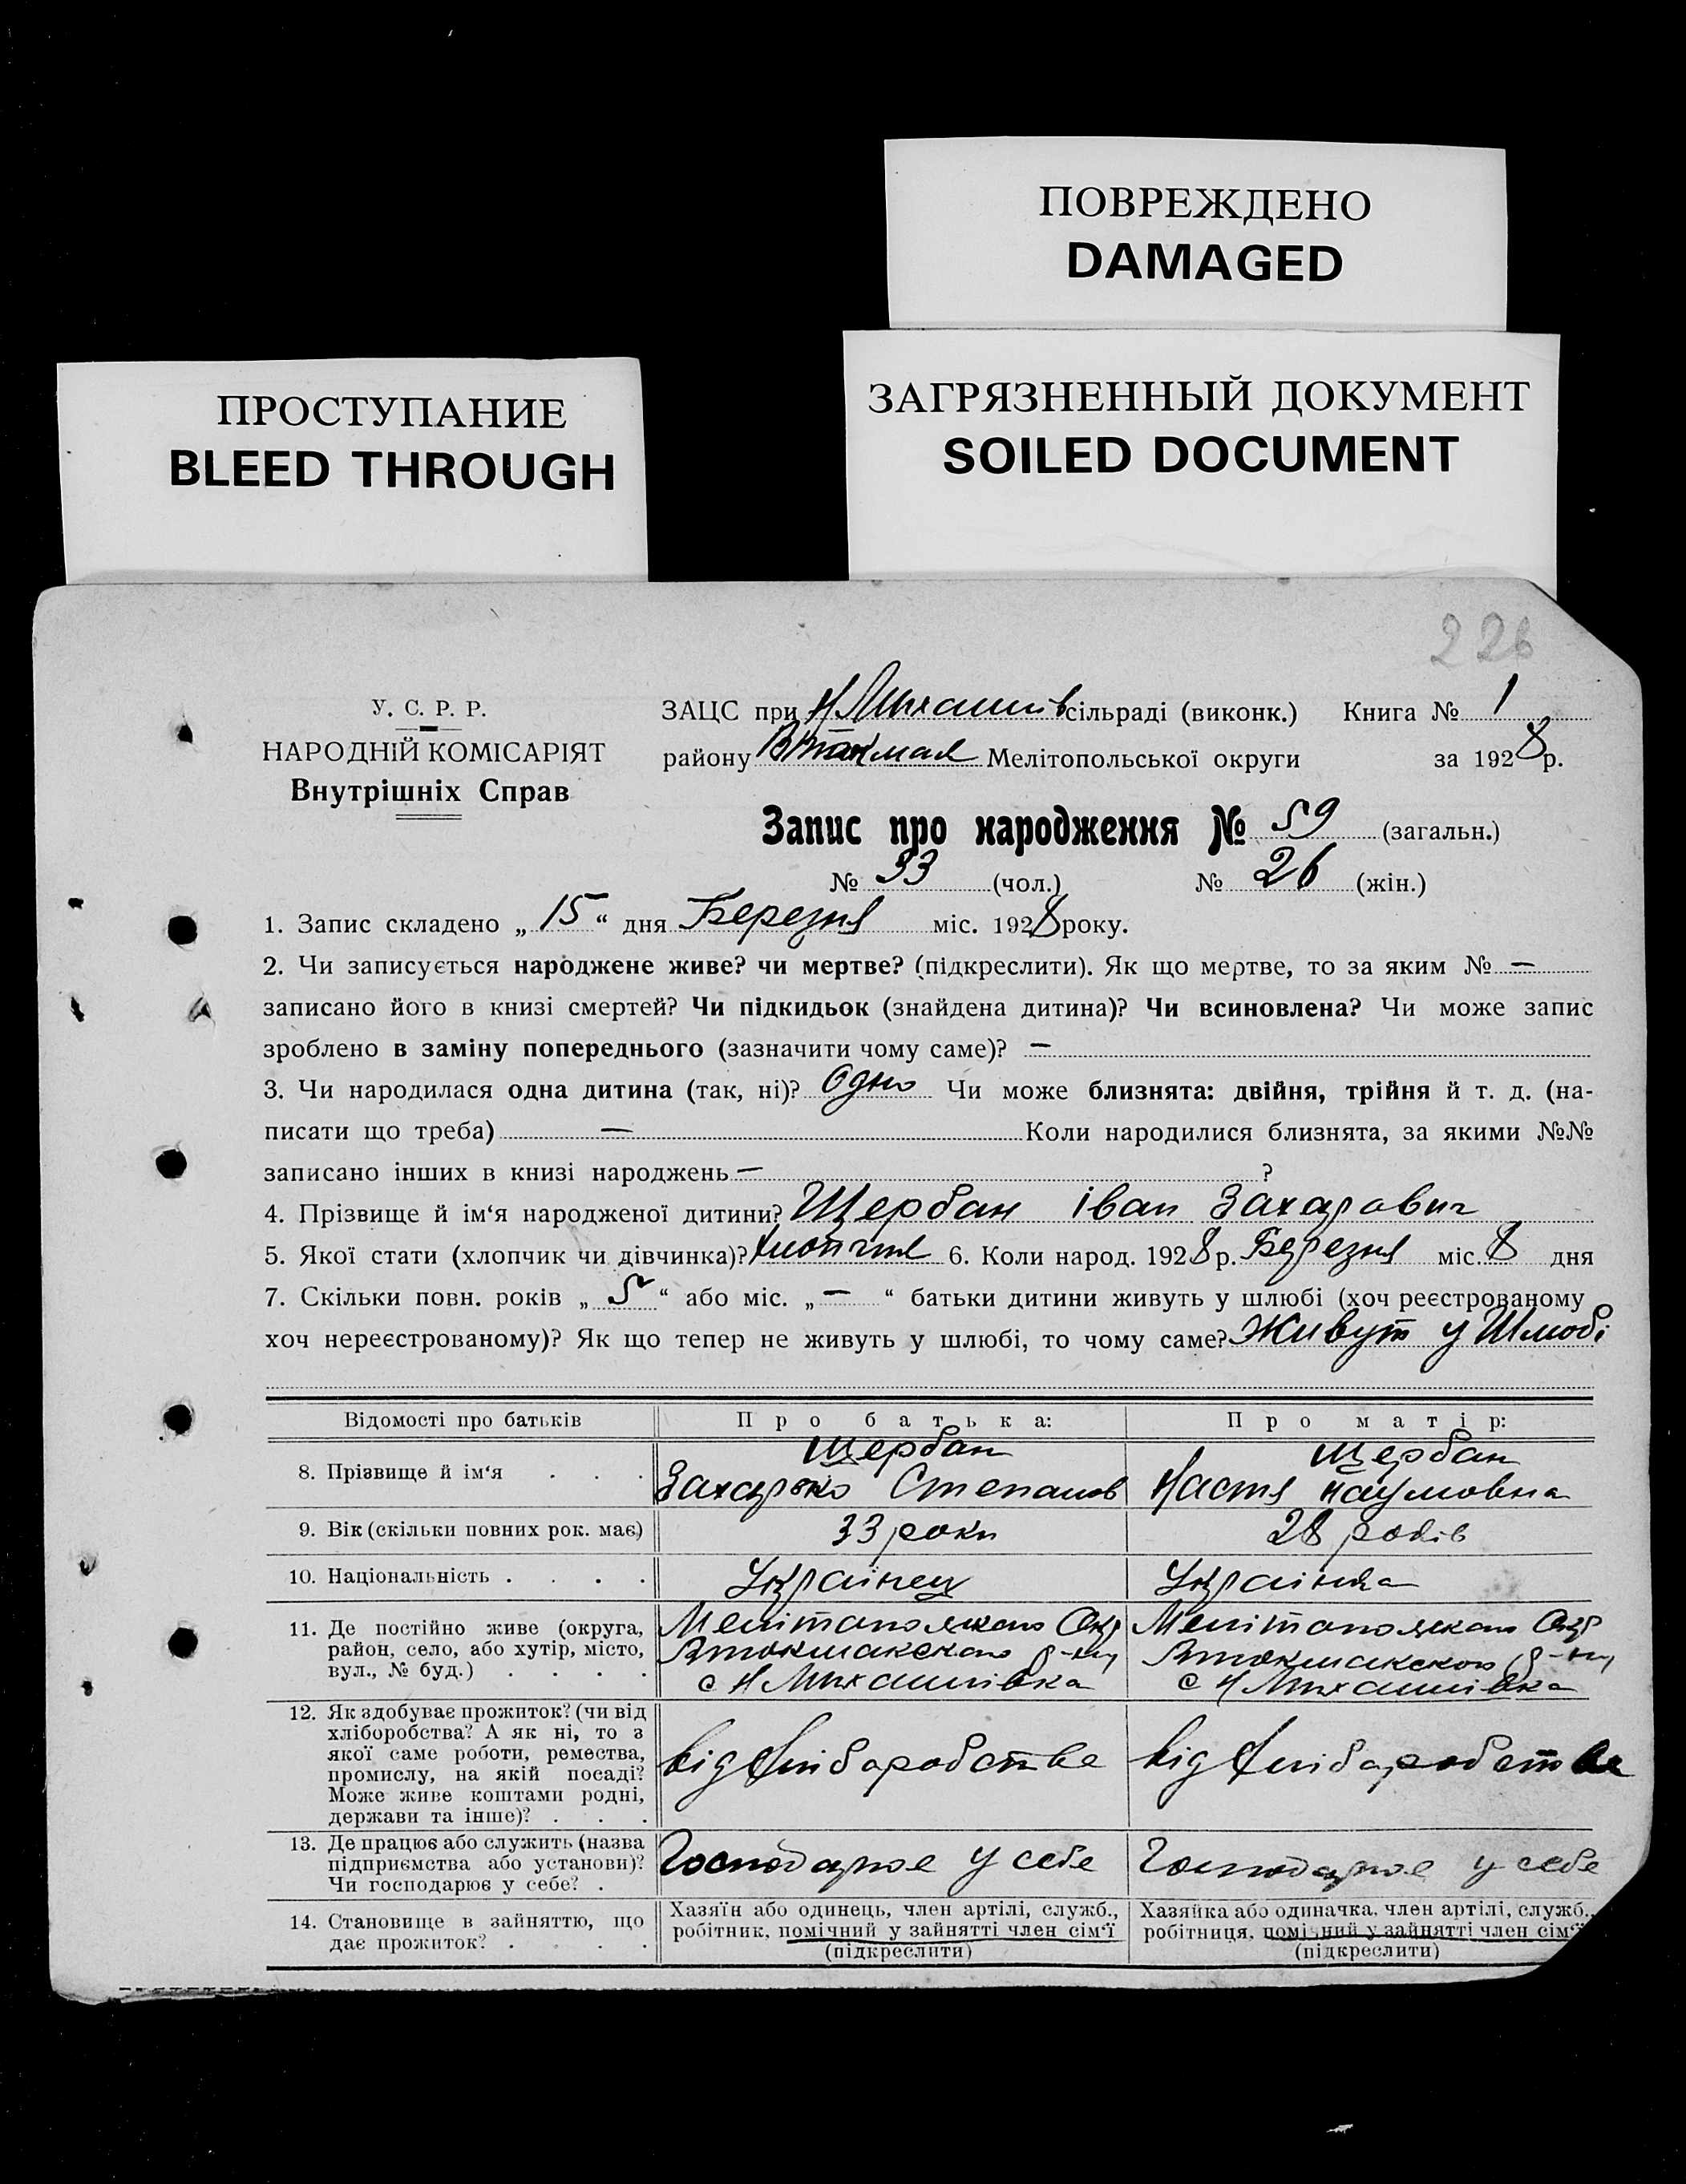 ПОВРЕЖДЕНО
DAMAGED
ПРОСТУПАНИЕ
BLEED THROUGH
ЗАГРЯЗНЕННЫЙ ДОКУМЕНТ
SOILED DOCUMENT
226
У. С. Р. Р.
НАРОДНІЙ КОМІСАРІЯТ
Внутрішніх Справ
ЗАЦС при Н Михайлів сільраді (виконк.) Книга № 1
району ВТокмак Мелітопольської округи за 1928 р.
Запис про народження № 59 (загальн.)
№ 33 (чол.) № 26 (жін.)
1. Запис складено „ 15 “ дня Березня міс. 1928 року.
2. Чи записується народжене живе? чи мертве? (підкреслити). Як що мертве, то за яким № —
записано його в книзі смертей? Чи підкидьок (знайдена дитина)? Чи всиновлена? Чи може запис
зроблено в заміну попереднього (зазначити чому саме)? —
3. Чи народилася одна дитина (так, ні)? Одно Чи може близнята: двійня, трійня й т. д. (на-
писати що треба) — Коли народилися близнята, за якими №№
записано інших в книзі народжень — ?
4. Прізвище й ім‘я народженої дитини? Щербан Іван Захарович
5. Якої стати (хлопчик чи дівчинка)? 6. Коли народ. 1928 р. Березня міс. 8 дня
7. Скільки повн. років „ 5 “ або міс. „ — “ батьки дитини живуть у шлюбі (хоч реєстрованому
хоч нереєстрованому)? Як що тепер не живуть у шлюбі, то чому саме? Живут у Шлюбі
Відомості про батьків Про батька: Про матір:
8. Прізвище й ім‘я . . . Щербан Щербан
Степанов Настя Наумовна
9. Вік (скільки повних рок. має) 33 роки 28 років
10. Національність . . . . Українец Українка
11. Де постійно живе (округа,
район, село, або хутір, місто,
вул., № буд.) . . . .
Мелітопольского Окр
Втокмакского р-ну
с Н Михайлівка
Мелітопольского Окр
Втокмакского р-ну
с Н Михайлівка
12. Як здобуває прожиток? (чи від
хліборобства? А як ні, то з
якої саме роботи, ремества,
промислу, на якій посаді?
Може живе коштами родні,
держави та інше)? . . .
від хлібаробства від хлібаробства
13. Де працює або служить (назва
підприємства або установи)?
Чи господарює у себе? .
Господарює у себе Господарює у себе
14. Становище в зайняттю, що
дає прожиток? . . . .
Хазяїн або одинець, член артілі, служб.,
робітник, помічний у зайнятті член сім‘ї
(підкреслити)
Хазяйка або одиначка, член артілі, служб.,
робітниця, помічний у зайнятті член сім‘ї
(підкреслити)